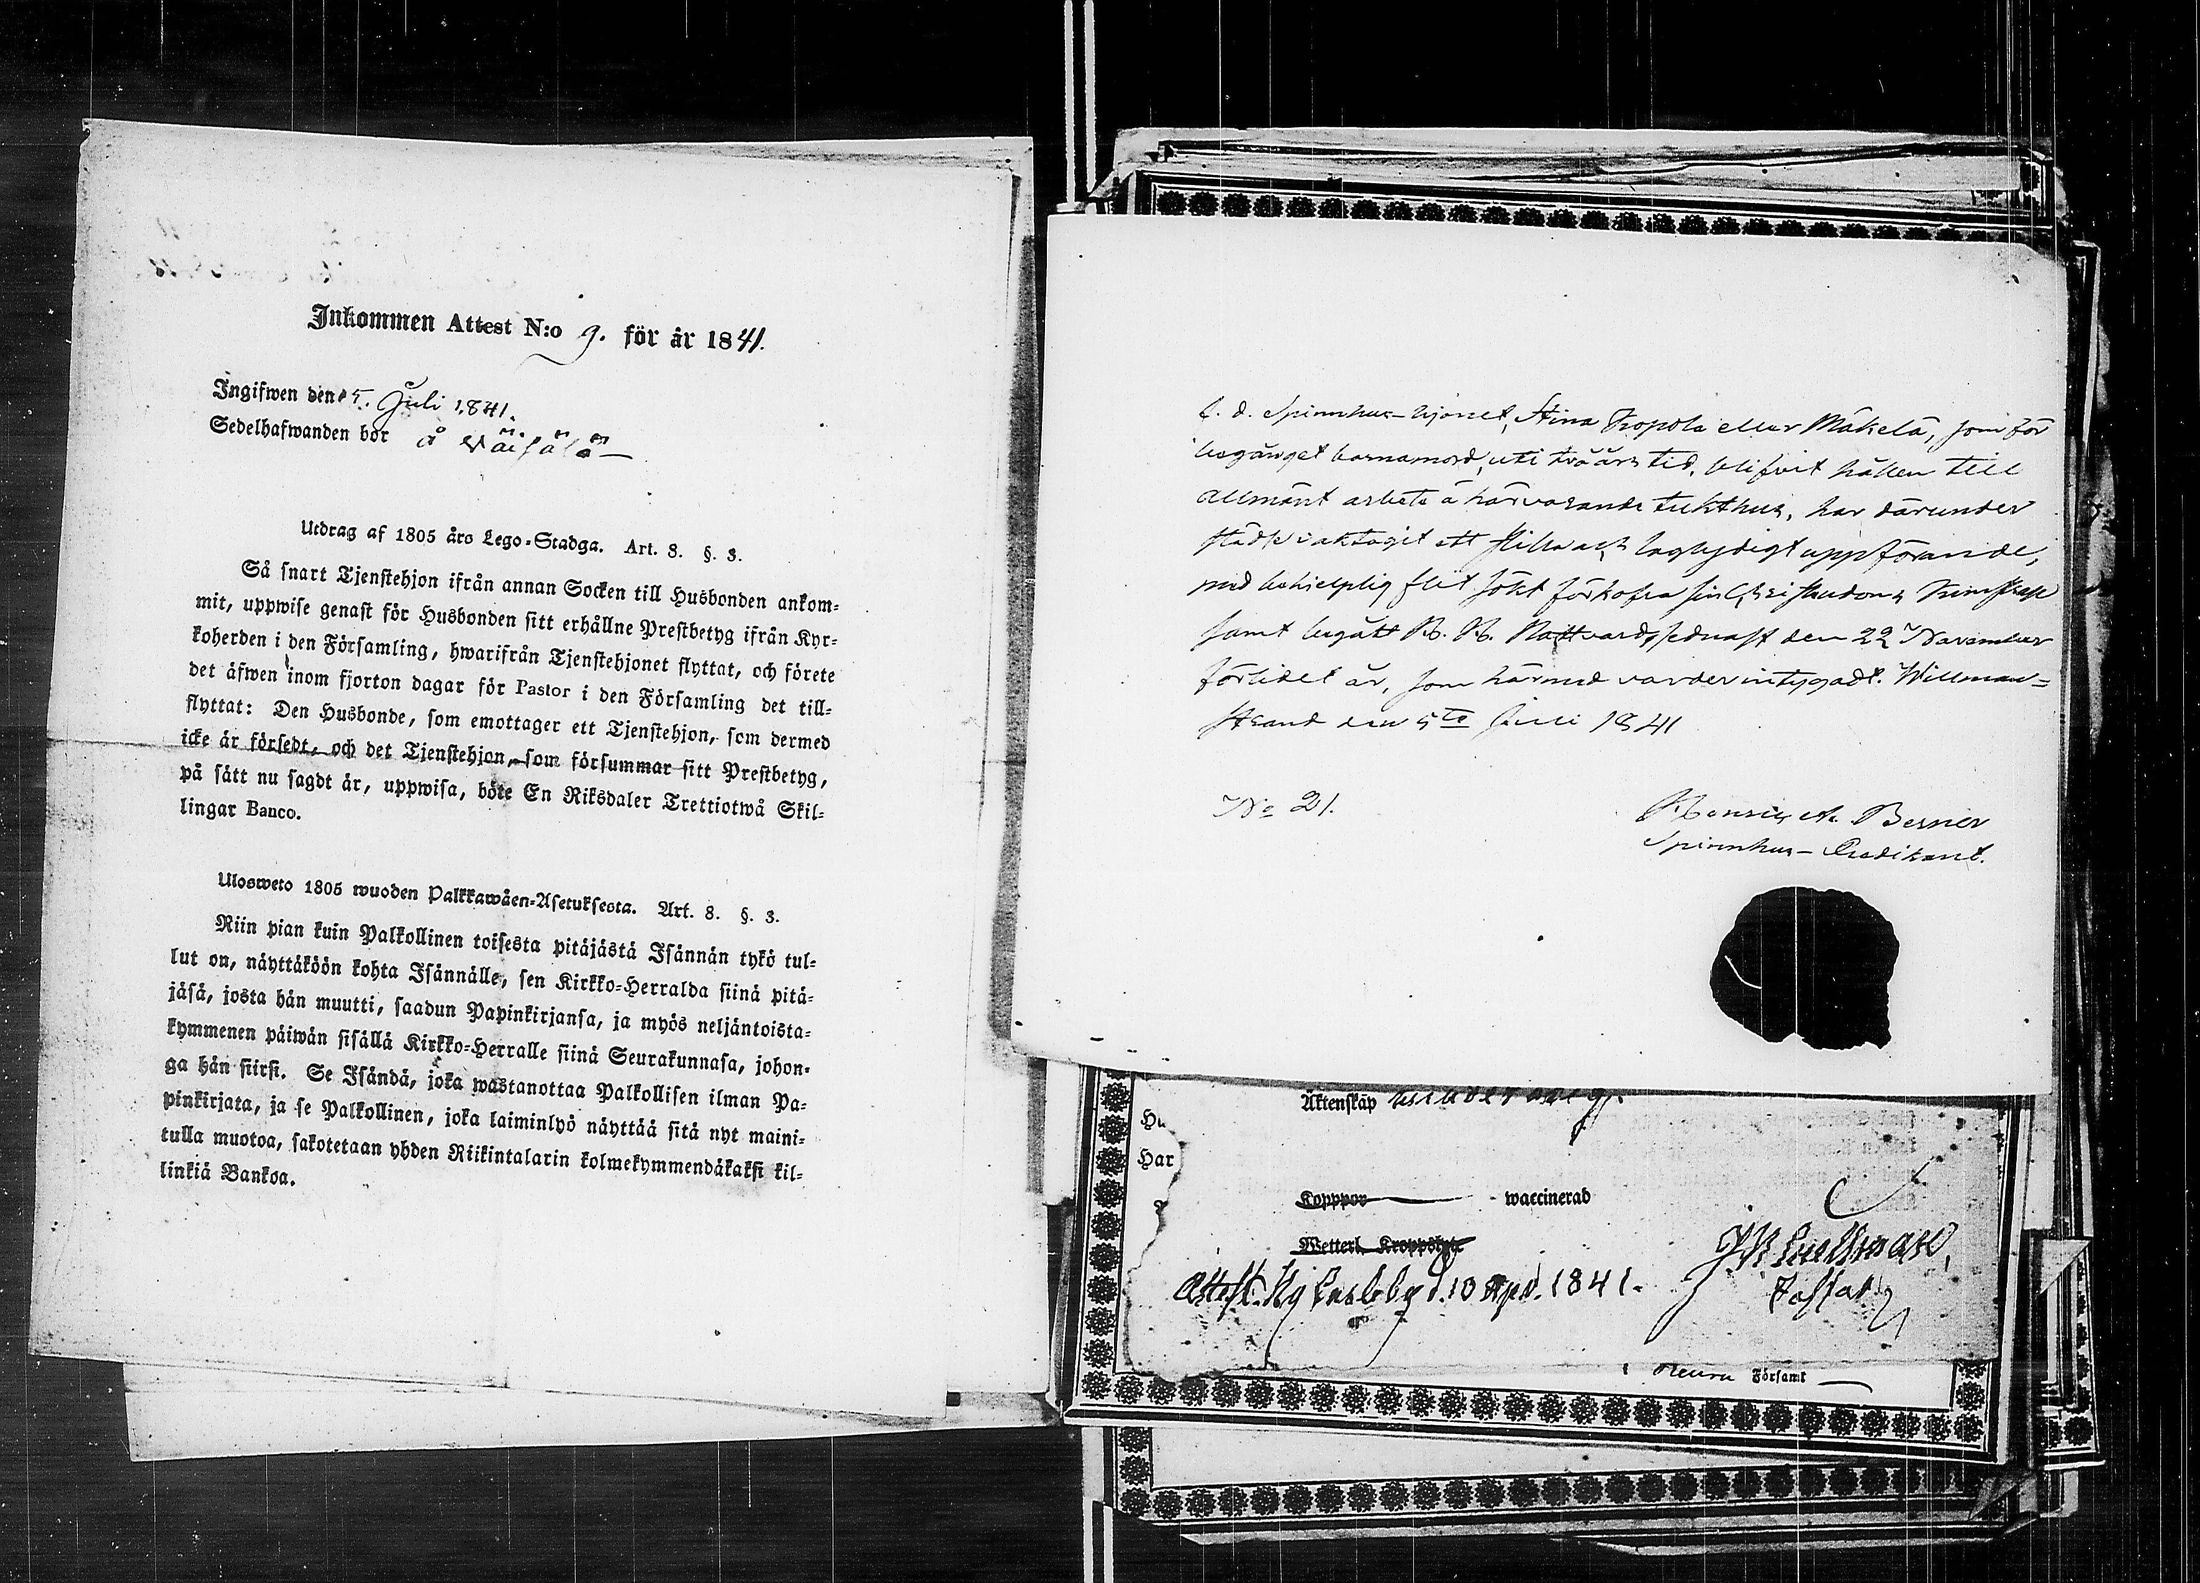 Inkommen Attest N:o 9. för år 1841.
Ingifwen den 5. Juli 1841.
Sedelhafwanden bor å Wäisälä
Utdrag af 1805 års Lego-Stadga. Art. 8. §. 3.
Så snart Tjenstehjon ifrån annan Socken till Husbonden ankom-
mit, uppwise genast för Husbonden sitt erhållne Prestbetyg ifrån Kyr-
koherden i den Församling, hwarifrån Tjenstehjonet flyttat, och förete
det äfwen inom fjorton dagar för Pastor i den Församling det till-
flyttat: Den Husbonde, som emottager ett Tjenstehjon, som dermed
icke är försedt, och det Tjenstehjon, som försummar sitt Prestbetyg,
på sätt nu sagdt är, uppwisa, böte En Riksdaler Trettiotwå Skil-
lingar Banco.
Ulosweto 1805 wuoden Palkkawäen-Asetuksesta. Art. 8. §. 3.
Niin pian kuin Palkollinen toisesta pitäjästä Isännän tykö tul-
lut on, näyttäköön kohta Isännälle, sen Kirkko-Herralda siinä pitä-
jäsä, josta hän muutti, saadun Papinkirjansa, ja myös neljäntoista-
kymmenen päiwän sisällä Kirkko-Herralle siinä Seurakunnasa, johon-
ga hän siirsi. Se Isändä, joka wastanottaa Palkollisen ilman Pa-
pinkirjata, ja se Palkollinen, joka laiminlyö näyttää sitä nyt maini-
tulla muotoa, sakotetaan yhden Riikintalarin kolmekymmendäkaksi kil-
linkiä Bankoa.
f. d. Spinnhus-hjonet, Stina Kopola eller Mäkelä, som för
begånget barnamord, uti två års tid, blifvit hållen till
allmänt arbete å härvarande tukthus, har därunder
städse iakttagit ett stilla och laglydigt uppförande,
med behielplig flit sökt förkofra sin Christendoms kunskap
samt begått H. H. Nattvard sednast den 22 November
förlidet år, som härmed varder intygadt. Willman-
strand den 5te Juli 1841
No 21.
Henric A. Berner
Spinnhus-Predikant.
Äktenskap
Hu
Har
Kopppor waccinerad
Wetterl. Kroppslyte
Attest. Ny Carleby d. 10 Apr. 1841.
Pastor
Församl